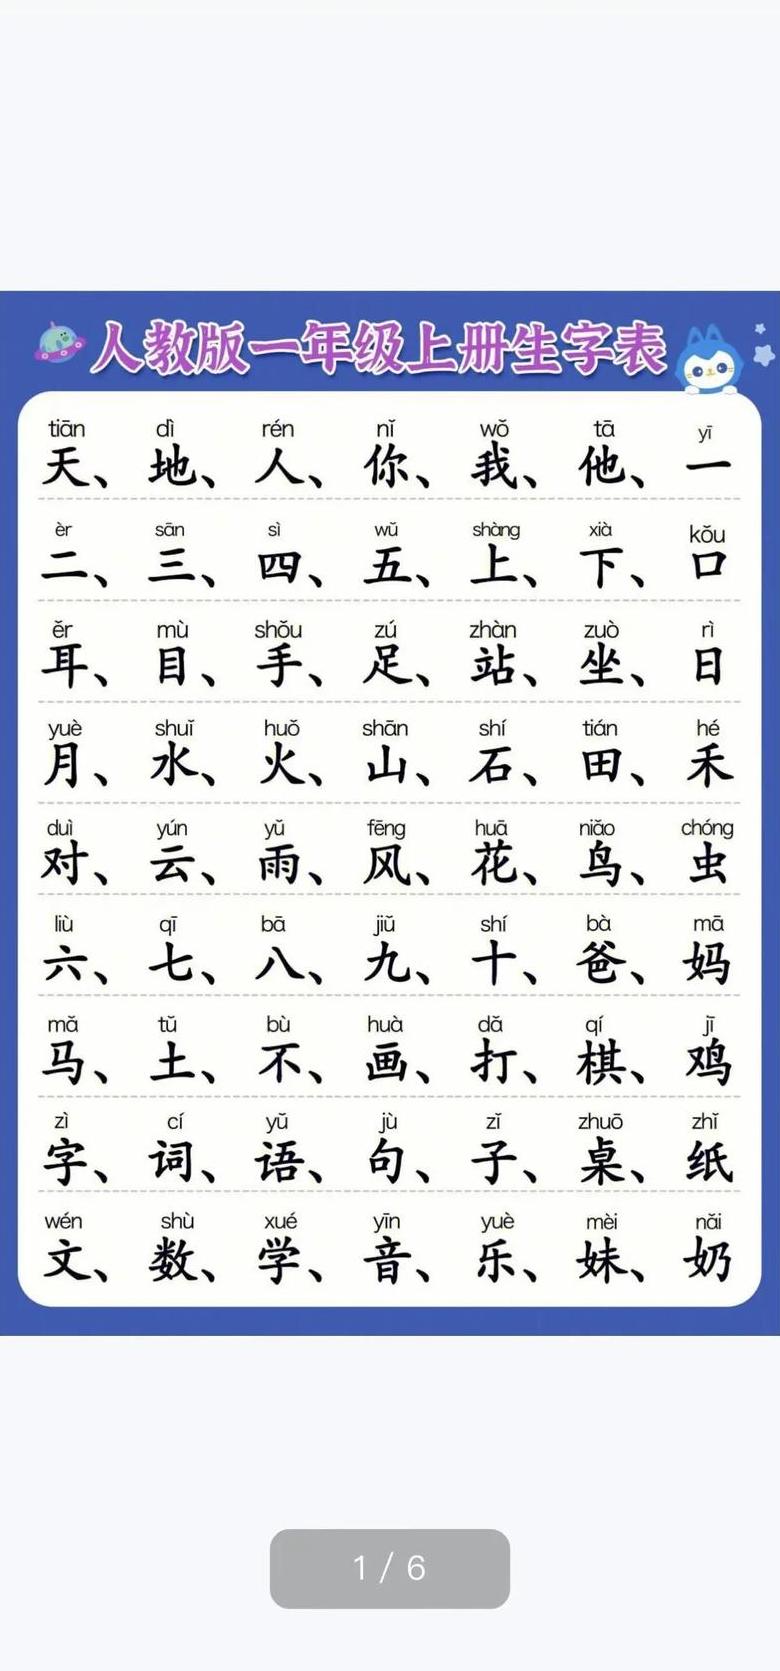 人教版一年级上册生字表
tiān dì rén nǐ wǒ tā yī
天、地、人、你、我、他、一
èr sān sì wǔ shàng xià kǒu
二、三、四、五、上、下、口
ěr mù shǒu zú zhàn zuò rì
耳、目、手、足、站、坐、日
yuè shuǐ huǒ shān shí tián hé
月、水、火、山、石、田、禾
duì yún yǔ fēng huā niǎo chóng
对、云、雨、风、花、鸟、虫
liù qī bā jiǔ shí bà mā
六、七、八、九、十、爸、妈
mǎ tǔ bù huà dǎ qí jī
马、土、不、画、打、棋、鸡
zì cí yǔ jù zǐ zhuō zhǐ
字、词、语、句、子、桌、纸
wén shù xué yīn yuè mèi nǎi
文、数、学、音、乐、妹、奶
1 / 6